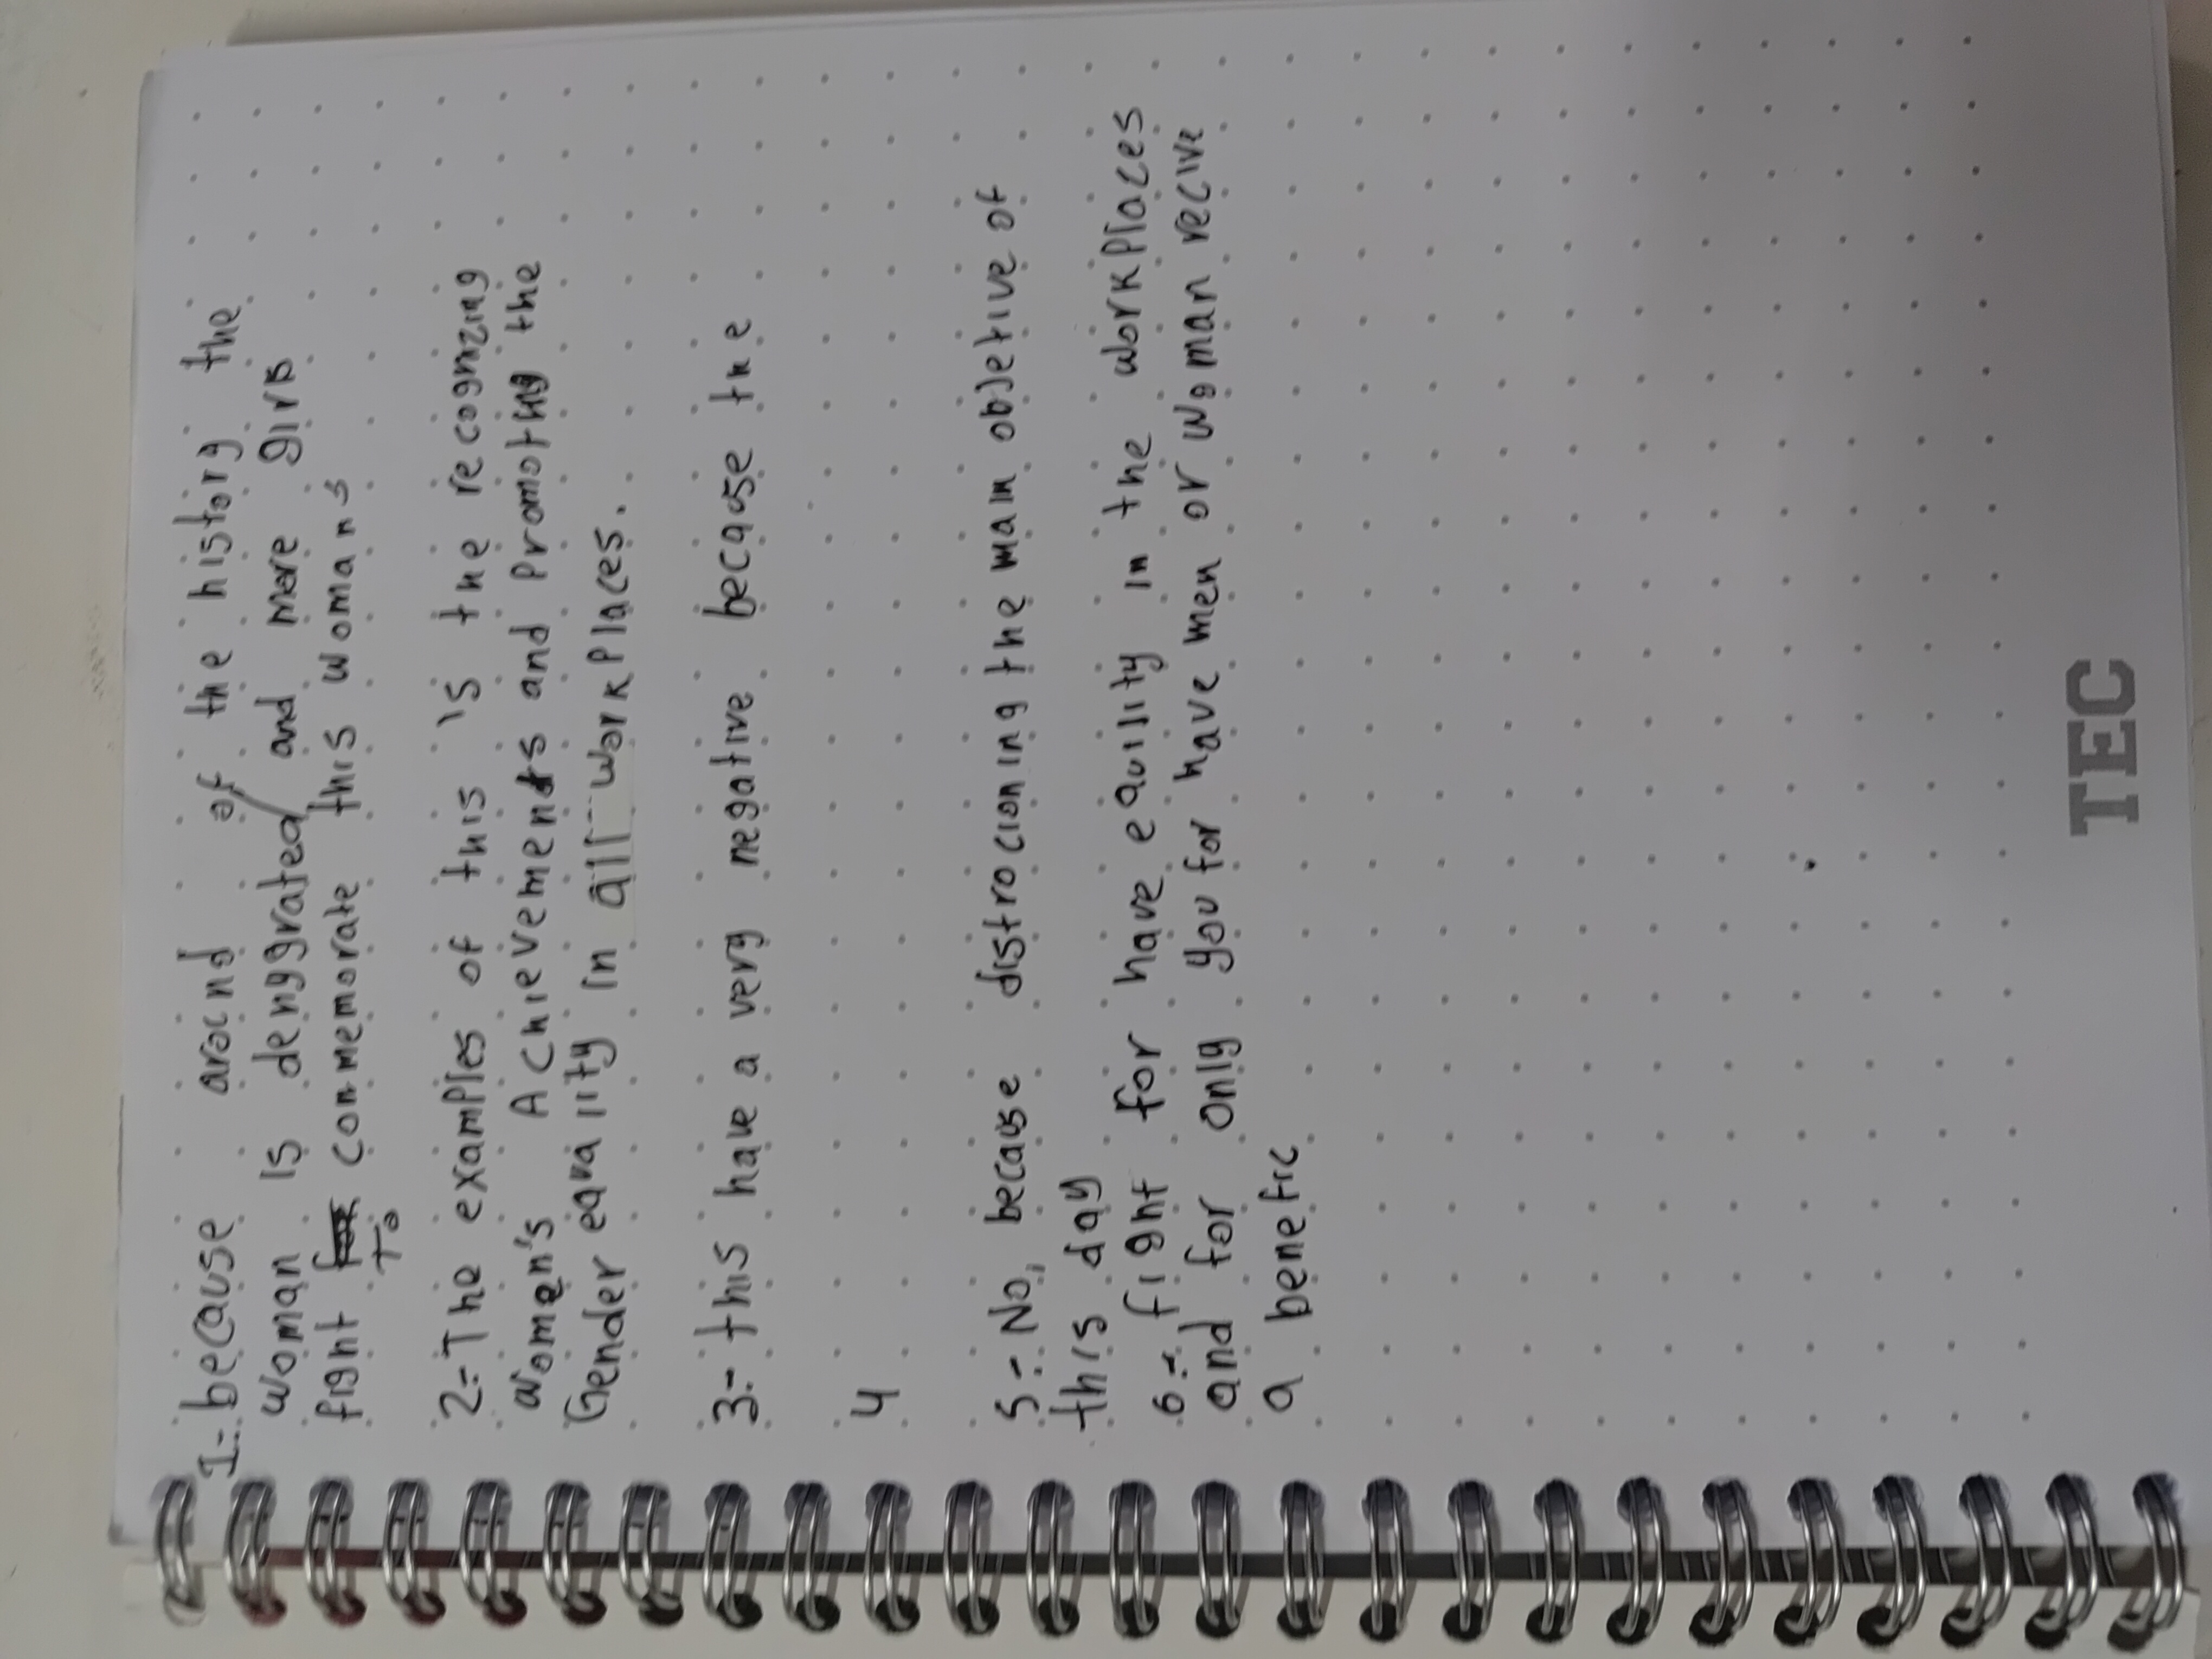 1-. because arocind of the history the
woman is denggrated and more girls
fight commemorate this womans
To
2-. The examples of this is the recognizing
women's Achievements and Promoting the
Gender equality in all workplaces.
3-. this have a very negative because the
4
5-. No, because distrocioning the main objetive of
this day
6-. fight for have equility in the workPlaces
and for only you for have men or woman recive
a benefic
TEC